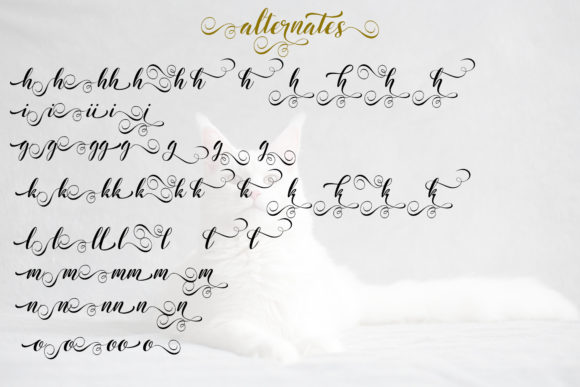 alternates
h h hh h h h h h h h h
i i ii i i
g g gg g g g g
k k kk k k k k k k k k
l l ll l l l l
m m mm m m
n n nn n n
o o oo o